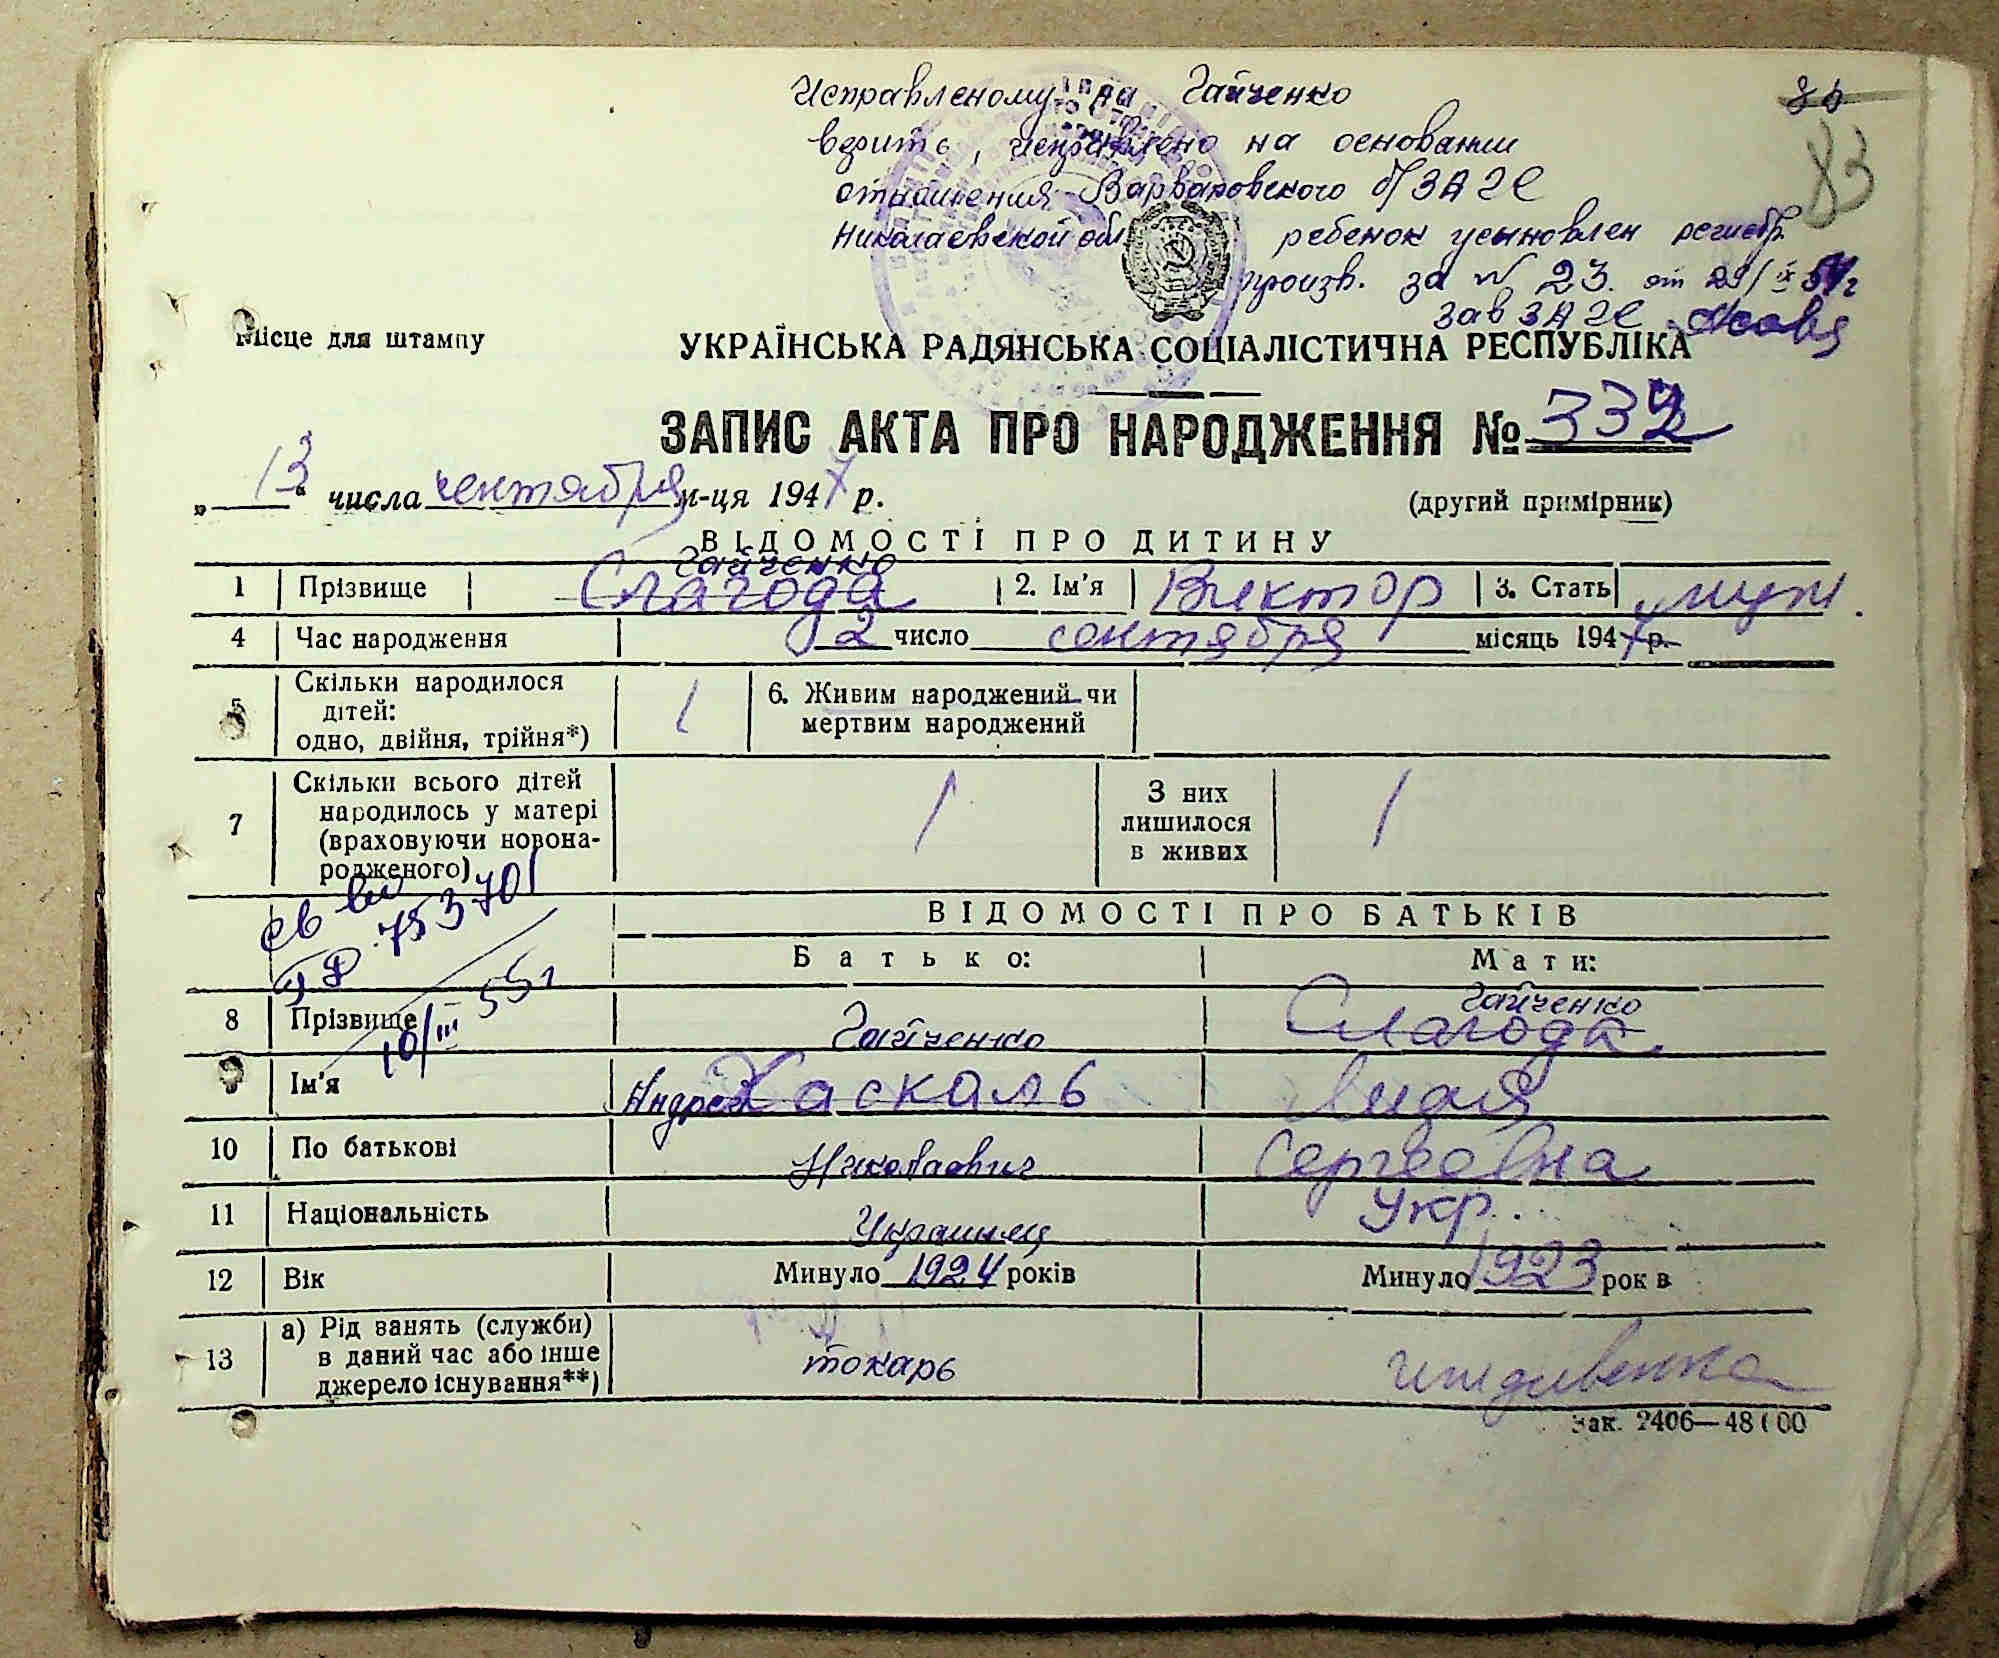 Исправленому на Гайченко 86
верить, исправлено на основании 83
отношения Варваровского б/ЗАГС
Николаевской обл ребенок усыновлен регистр.
произв. за № 23. от 29/IX 54 г
зав ЗАГС
Місце для штампу
УКРАЇНСЬКА РАДЯНСЬКА СОЦІАЛІСТИЧНА РЕСПУБЛІКА
ЗАПИС АКТА ПРО НАРОДЖЕННЯ № 332
„13" числа сентября м-ця 1947 р.
(другий примірник)
ВІДОМОСТІ ПРО ДИТИНУ
Гайченко
1 Прізвище Слагода 2. Ім'я Виктор 3. Стать муж.
4 Час народження 2 число сентября місяць 1947 р.
5 Скільки народилося дітей: одно, двійня, трійня*) 1 6. Живим народжений чи мертвим народжений
7 Скільки всього дітей народилось у матері (враховуючи новонародженого) 1 З них лишилося в живих 1
св во
ТФ 753701
10/III 55 г
ВІДОМОСТІ ПРО БАТЬКІВ
Батько: Мати:
Гайченко
8 Прізвище Гайченко Слагода
9 Ім'я Андрей Хаскаль Лидия
10 По батькові Николаевич Сергеевна
11 Національність Украинец Укр.
12 Вік Минуло 1924 років Минуло 1923 рок в
13 а) Рід занять (служби) в даний час або інше джерело існування**) токарь иждивенка
Зак. 2406—48 00